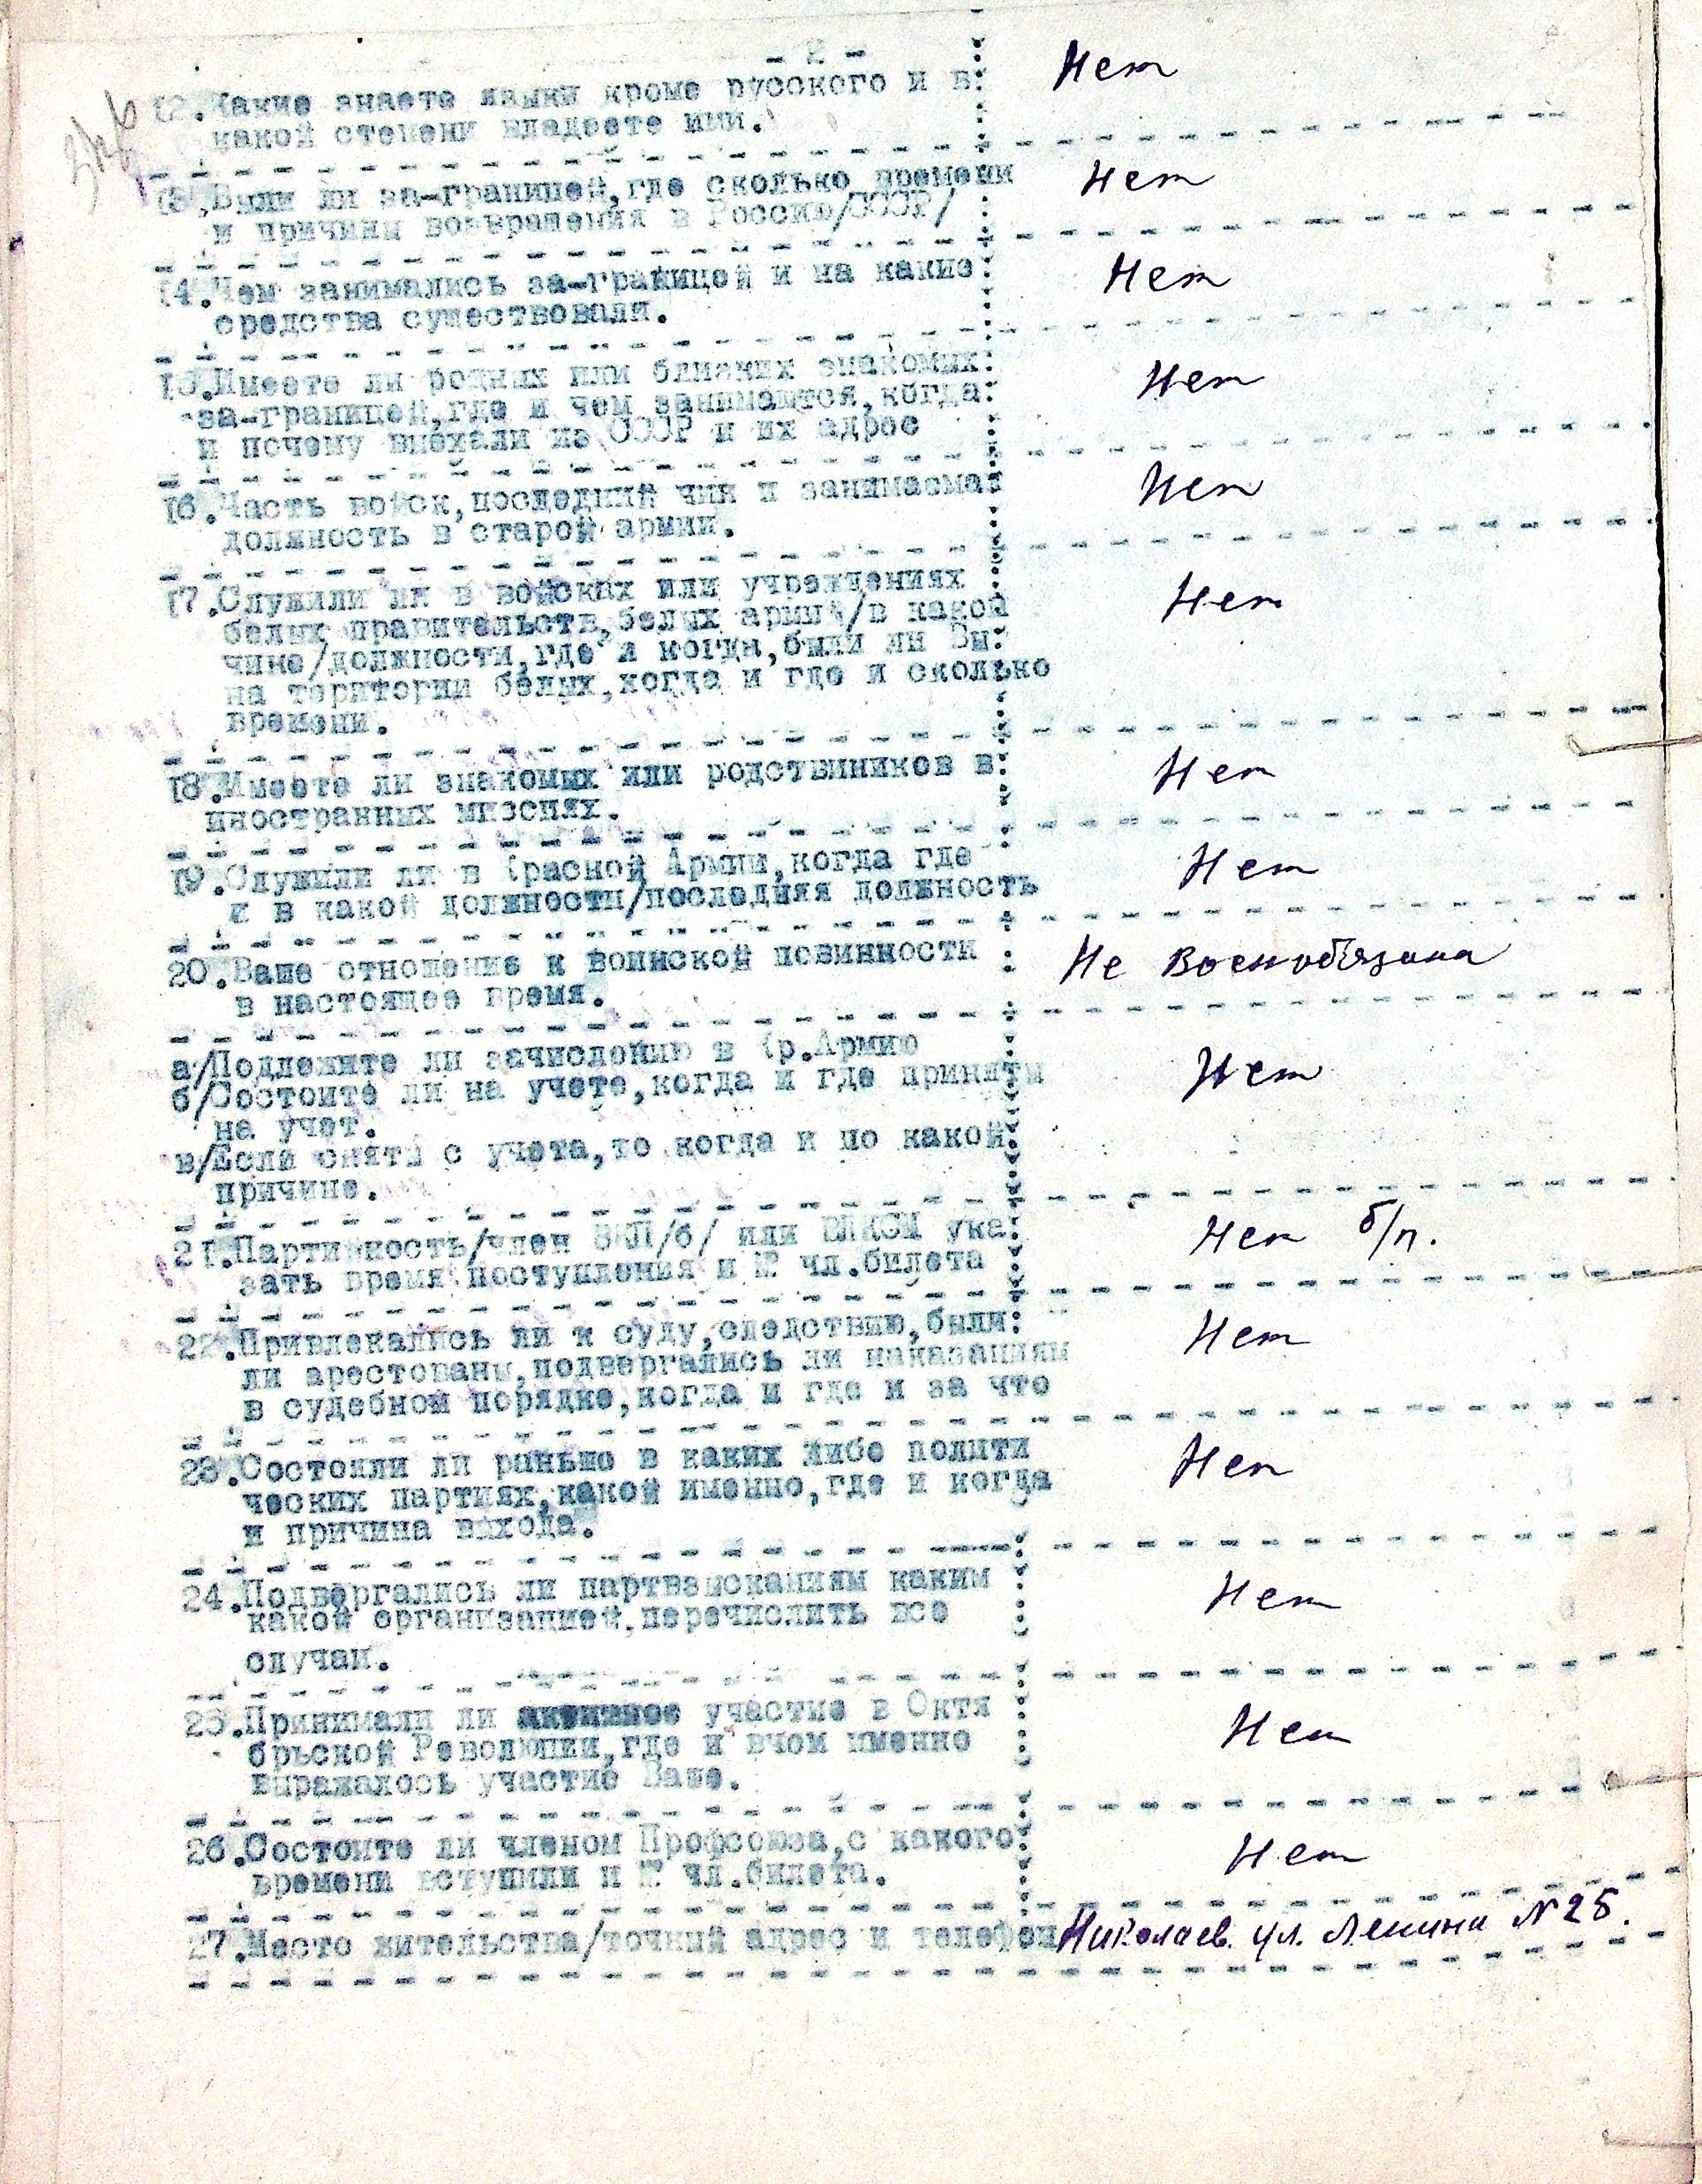 - 2 -
12.Какие знаете языки кроме русского и в: Нет
какой степени владеете ими.
13.Были ли за-границей,где сколько времени Нет
и причины возвращения в Россию/СССР/
14.Чем занимались за-границей и на какие: Нет
средства существовали.
15.Имеете ли родных или близких знакомых: Нет
за-границей,где и чем занимаются,когда:
и почему выехали из СССР и их адрес
16.Часть войск,последний чин и занимаемая Нет
должность в старой армии.
17.Служили ли в войсках или учреждениях Нет
белых правительств,белых армий/в какой
чине/должности,где и когда,были ли Вы:
на територии белых,когда и где и сколько
времени.
18.Имеете ли знакомых или родственников в: Нет
иностранных миссиях.
19.Служили ли в Красной Армии,когда где Нет
и в какой должности/последняя должность
20.Ваше отношение к воинской повинности : Не Военнобязана
в настоящее время.
а/Подлежите ли зачислению в Кр.Армию
б/Состоите ли на учете,когда и где приняты Нет
на учет.
в/Если сняты с учета,то когда и по какой:
причине.
21.Партийность/член ВКП/б/ или ВЛКСМ ука: Нет б/п.
зать время поступления и № чл.билета
22.Привлекались ли к суду,следствию,были: Нет
ли арестованы,подвергались ли наказаниям
в судебном порядке,когда и где и за что
23.Состояли ли раньше в каких либо полити Нет
ческих партиях,какой именно,где и когда
и причина выхода.
24.Подвергались ли партвзысканиям каким Нет
какой организацией,перечислить все
случаи.
25.Принимали ли активное участие в Октя Нет
брьской Революции,где и вчом именно
выражалось участие Ваше.
26.Состоите ли членом Профсоюза,с какого: Нет
времени вступили и № чл.билета.
27.Место жительства/точный адрес и телефон Николаев. ул. Ленина №25.